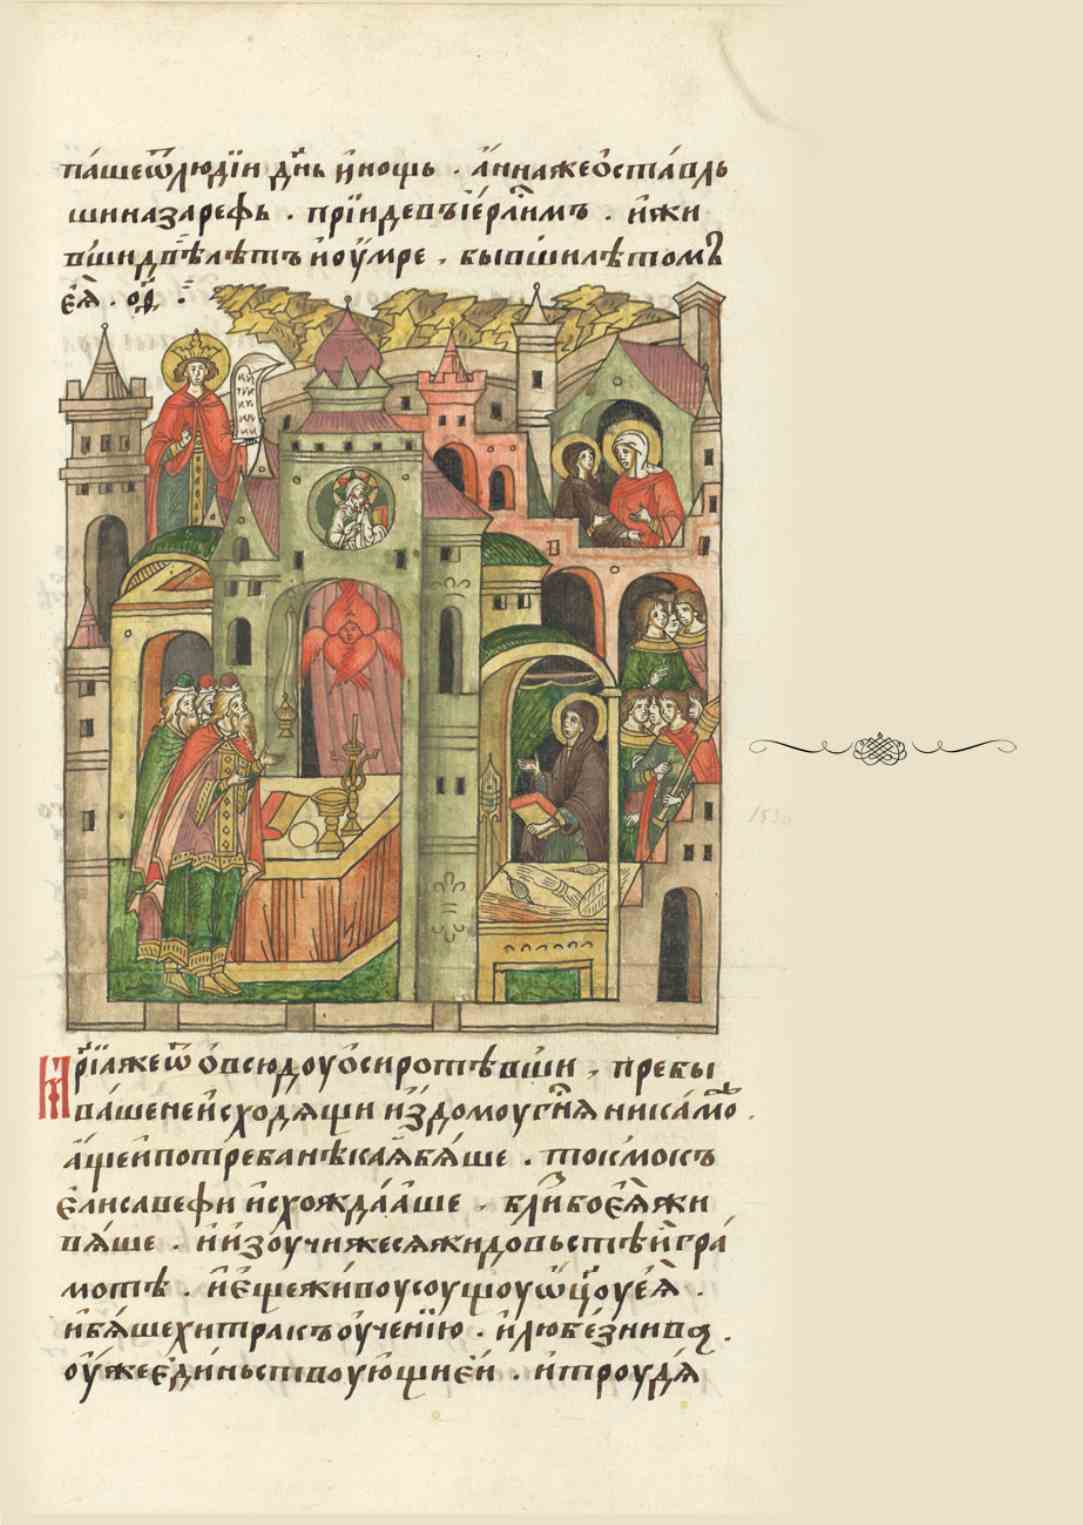 па́шеѿлюдїи дн҃ь и҆нощь . а҆ннажеѡ҆ста́вль
шиназарефь . прїидевъїер҃лимъ . и҆жи
вши двѣ лѣтѣ и҆оу҆мре . бывши лѣтомъ
є҆ѧ̀ . о҃д :
Мр҃їѧже ѿ ѡ҆всюдоу ѡ҆сиротѣвши , пребы
ва́ше неи҆сходѧщи и҆здомоу гн҃ѧ никамо .
а҆ще и҆потреба нѣкаѧ бѧ́ше . токмо къ
є҆лисавефи и҆схождааше . бли́ бо є҆ѧ̀ жи
вѧ́ше . и҆и҆зоучижесѧ жидовьстѣй гра́
мотѣ . и҆є҆ще живоу соущоу ѿц҃оу є҆ѧ̀ .
и҆бѧ́ше хитра къ оу҆ченїю . и҆любе́знива .
оу҆же є҆ди́ньствоующи є҆и . и҆троудѧ̀